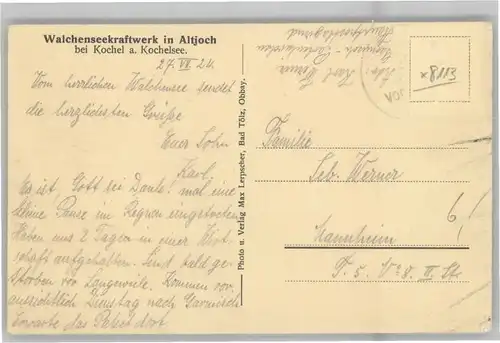 Walchenseekraftwerk in Altjoch
bei Kochel a. Kochelsee.
27. VII. 24.
Vom herrlichen Walchensee sendet
die herzlichsten Grüße
Euer Sohn
Karl.
Es ist, Gott sei Dank! mal eine
kleine Pause im Regnen eingetreten
Haben uns 2 Tagen in einer Wirt-
schaft aufgehalten. Sind bald ge-
storben vor Langeweile. Kommen vor-
aussichtlich Dienstag nach Garmisch
Erwarte das Paket dort
Photo u. Verlag Max Lerpscher, Bad Tölz, Obbay.
Karl Werner
Garmisch-Partenkirchen
*8113
Familie
Seb. Werner
6!
Mannheim
T. 5. No 8. II. St.